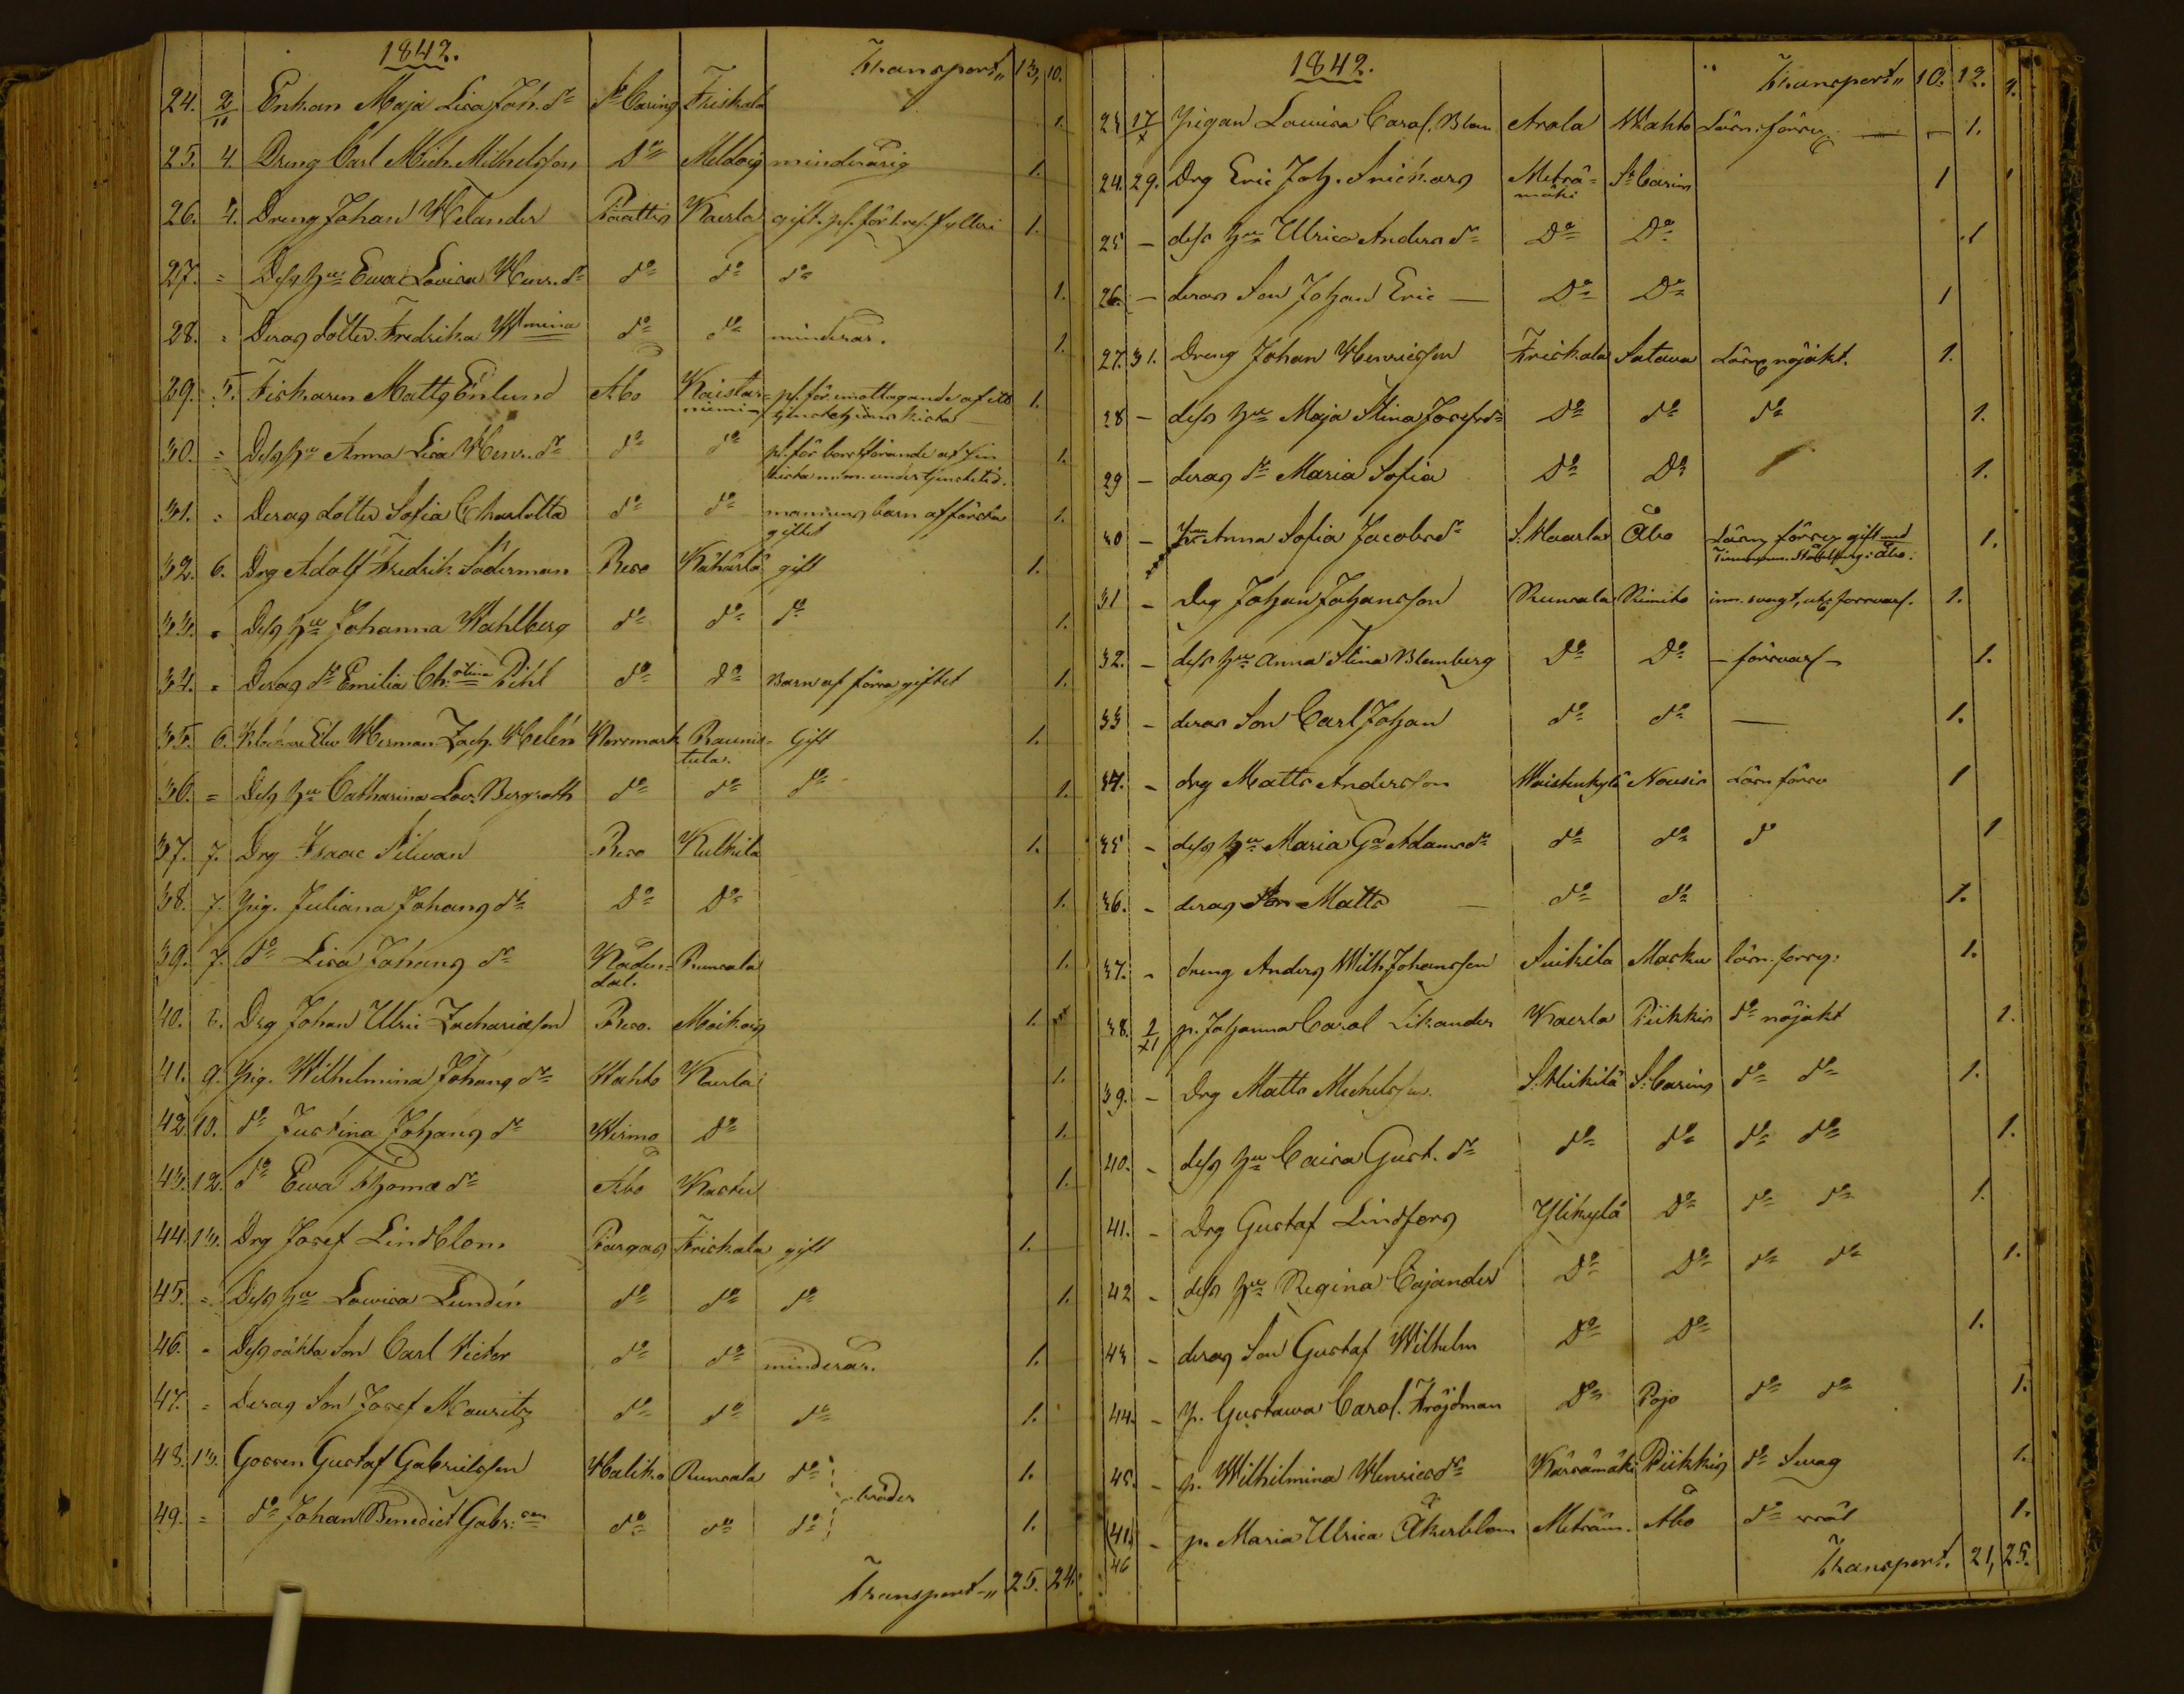 1842.
Transport" 13, 10.
24. 2/11 Enkan Maja Lisa Joh. dr St Carins Friskala 1.
25. 4. Dreng Carl Mich. Michelsson Do Meldoig minderårig 1.
26. 4. Dreng Johan Welander Paattis Kaerla gift. pl. för fylleri 1.
27. = Dess hu Ewa Lovisa Henr. dr do do do 1.
28. = Deras dotter Fredrika Wmina do do minderår. 1.
29. 5. Fiskaren Matts Enlund Åbo Kaistar- pl. för emottagande af ett 1.
niemi
30. = Dess hu Anna Lisa Henr. dr do do pl. för bortförande af sin 1.
kista m.m. under tjenstetid.
31. = Deras dotter Sofia Charlotta do do mannens barn af första 1.
giftet
32. 6. Drg Adolf Fredrik Söderman Reso Kähärlä gift 1.
33. = Dess hu Johanna Wahlberg do do do 1.
34. = Deras dr Emilia Ch:stina Pihl do do Barn af förra giftet 1.
35. 6. Klockare Elev Herman Zach. Helén Norrmark Raunis- Gift 1.
tula.
36. = Dess hu Catharina Lov. Bergroth do do do 1.
37. 7. Drg Isaac Silwan Reso Kulkila 1.
38. 7. Pig. Juliana Johans dr Do Do 1.
39. 7. do Lisa Johans dr Nåden- Runsala 1.
dal.
40. 8. Drg Johan Ulric Zachariasson Reso. Moikois 1.
41. 9. Pig. Wilhelmina Johans dr Wahto Kaerla 1.
42. 10. do Justina Johans dr Wirmo Do 1.
43. 12. do Ewa Thomæ dr Åbo Kastu 1.
44. 13. Drg Josef Lindblom Pargas Friskala gift 1.
45. = Dess hu Lovisa Lundén do do do 1.
46. = Dess oäkta Son Carl Victor do do minderår. 1.
47. = Deras Son Josef Mauritz do do do 1.
48. 13. Gossen Gustaf Gabrielsson Haliko Runsala do 1.
bröder
49. = do Johan Benedict Gabr:son do do do 1.
Transport-" 25. 24.
1842.
Transport" 10. 12.
23 17/X Pigan Lovisa Carol. Blom Arola Wahto Läsn. förrg — 1.
24. 29. Drg Eric Joh. Metsä- St Carins 1
mäki
25 — dess hu Ulrica Anders dr Do Do 1
26. — deras Son Johan Eric — Do Do 1
27. 31. Dreng Johan Henricsson Friskala Satava Läsng nöjakt. 1.
28 — dess hu Maja Stina Josefsdr Do do do 1.
29 — deras dr Maria Sofia Do Do 1.
30 — Anna Sofia Jacobs dr S. Kaarla Åbo Läsn. förrg gift med 1.
i Åbo.
31 — Drg Johan Johansson Runsala Kimito inn. svagt, utg. försvarl. 1.
32. — dess hu Anna Stina Blomberg Do Do — försvarl — 1.
33 — deras Son Carl Johan do do — 1.
34. — drg Matts Andersson Waistenkylä Nousis Läsn förrg 1
35 — dess hu Maria Ga Adamsdr do do d 1
36. — deras Son Matts — do do 1.
37. — dreng Anders Wilh. Johansson Suikila Masku läsn. förrg. 1.
38. 2/XI p. Johanna Carol Likander Kaerla Piikkis do nöjakt 1.
39. — Drg Matts Michelsson. S. Heikilä S: Carins do do 1.
40. — dess hu Caisa Gust. dr do do do do 1.
41. — Drg Gustaf Lindfors Ylikylä Do do do 1.
42 — dess hu Regina Cajander Do Do do do 1.
43 — deras Son Gustaf Wilhelm Do Do 1.
44. — p. Gustawa Carol. Fröjdman Do Pojo do do 1.
45. — p. Wilhelmina Henricsdr Kärsämäki Piikkis do Swag 1.
(41.) — p. Maria Ulrica Åkerblom Metsäm. Åbo do 1.
46
Transport. 21, 25.